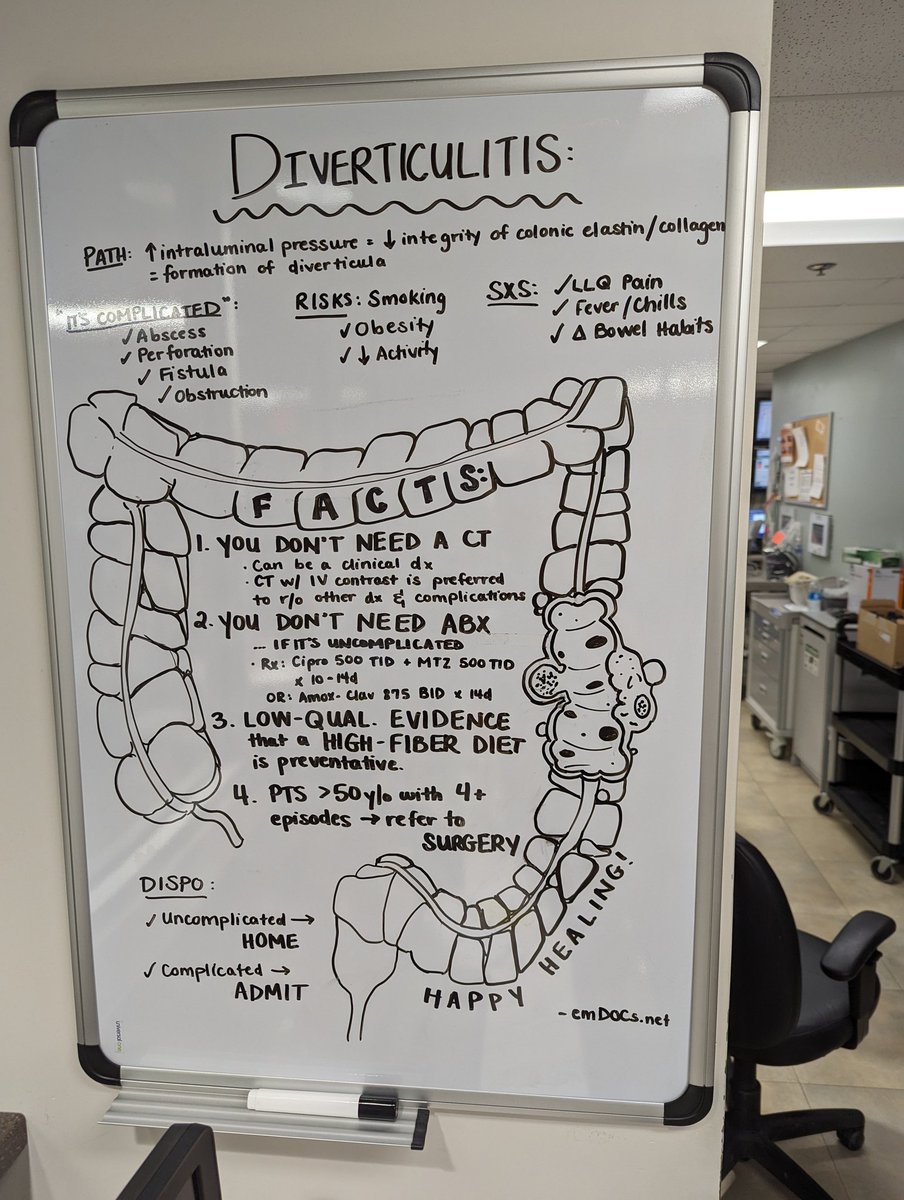 DIVERTICULITIS:
PATH: ↑ intraluminal pressure = ↓ integrity of colonic elastin/collagen
= formation of diverticula
"IT'S COMPLICATED":
✓ Abscess
✓ Perforation
✓ Fistula
✓ Obstruction
RISKS: Smoking
✓ Obesity
✓ ↓ Activity
SXS: ✓ LLQ Pain
✓ Fever/Chills
✓ Δ Bowel Habits
FACTS:
1. YOU DON'T NEED A CT
· Can be a clinical dx
· CT w/ IV contrast is preferred
to r/o other dx & complications
2. YOU DON'T NEED ABX
... IF IT'S UNCOMPLICATED
· Rx: Cipro 500 TID + MTZ 500 TID
x 10-14d
OR: Amox-Clav 875 BID x 14d
3. LOW-QUAL. EVIDENCE
that a HIGH-FIBER DIET
is preventative.
4. PTS >50 y/o with 4+
episodes → refer to
SURGERY
DISPO:
✓ Uncomplicated →
HOME
✓ Complicated →
ADMIT
HAPPY HEALING!
- emDOCs.net